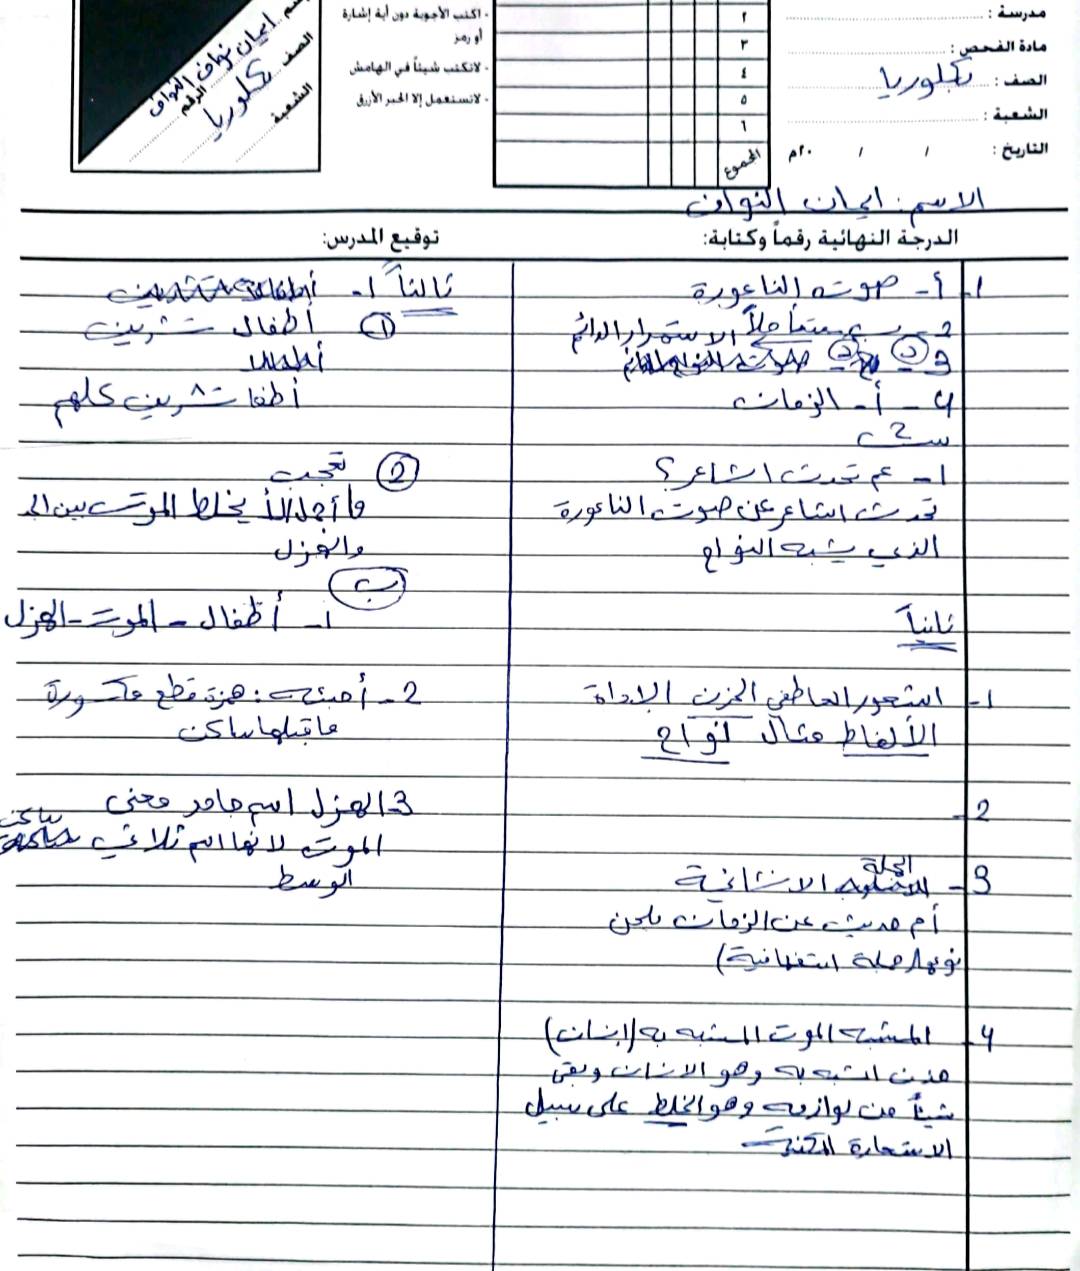 مدرسة :
مادة الفحص :
الصف : بكلوريا
الشعبة :
التاريخ : / / ٢٠م
٢
٣
٤
٥
٦
المجموع
- اكتب الأجوبة دون أية إشارة
أو رمز
- لاتكتب شيئاً في الهامش
- لاتستعمل إلا الحبر الأزرق
ايمان نواف النواف
الرقم
الصف بكلوريا
الشعبة
الاسم : ايمان النواف
الدرجة النهائية رقماً وكتابة:
1- أ- صوت الناعورة
2- الاستمرار الدائم
3
4- أ- الزمان
س2
1- عم تحدث الشاعر؟
تحدث الشاعر عن صوت الناعورة
الذي يشبه النواح
ثانياً
1- الشعور العاطفي الحزن الاداة
الألفاظ مثال نواح
2-
3- الجملة الانشائية
أم حديث عن الزمان بلحن
نوعها جملة استفهامية)
4- المشبه الموت المشبه به (انسان)
حذف المشبه به وهو الانسان وبقى
شيئاً من لوازمه وهو الخلط على سبيل
الاستعارة المكنية
توقيع المدرس:
ثالثاً 1-
1 أطفال تشرين
أطفا تشرين كلهم
2 تعجب
ما أجمل ألا يخلط الموت بين الجد
والهزل
ب
1- أطفال - الموت - الهزل
2- همزة قطع
ماقبلها ساكن
3 الهزل اسم جامد معنى
الموت لانها اسم ثلاثي ساكن
الوسط